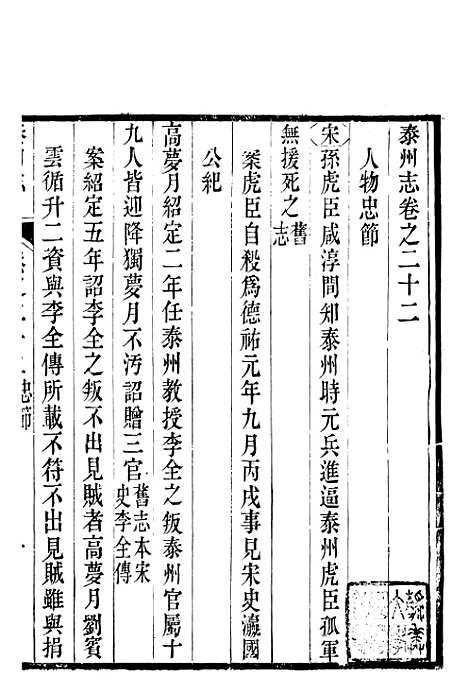 泰州志卷之二十二
人物忠節
宋孫虎臣咸淳間知泰州時元兵進逼泰州虎臣孤軍
無援死之舊志
案虎臣自殺爲德祐元年九月丙戌事見宋史瀛國
公紀
高夢月紹定二年任泰州教授李全之叛泰州官屬十
九人皆迎降獨夢月不汚詔贈三官舊志本宋史李全傳
案紹定五年詔李全之叛不出見賊者高夢月劉賓
雲循升二資與李全傳所載不符不出見賊雖與捐
忠節